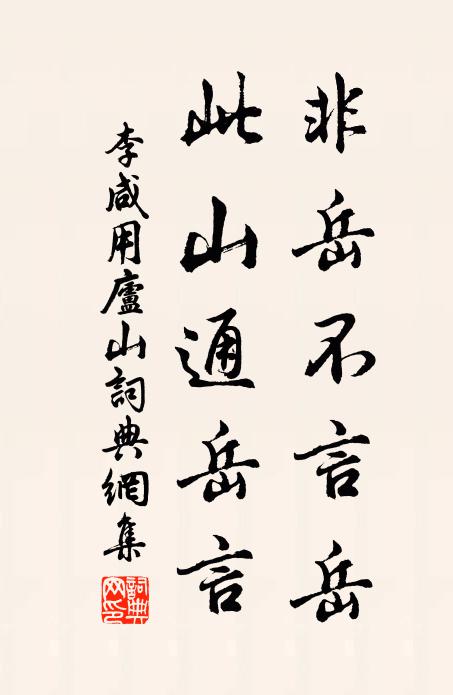 非岳不言岳
此山通岳言
李咸用廬山詞典網集
詞典
网印